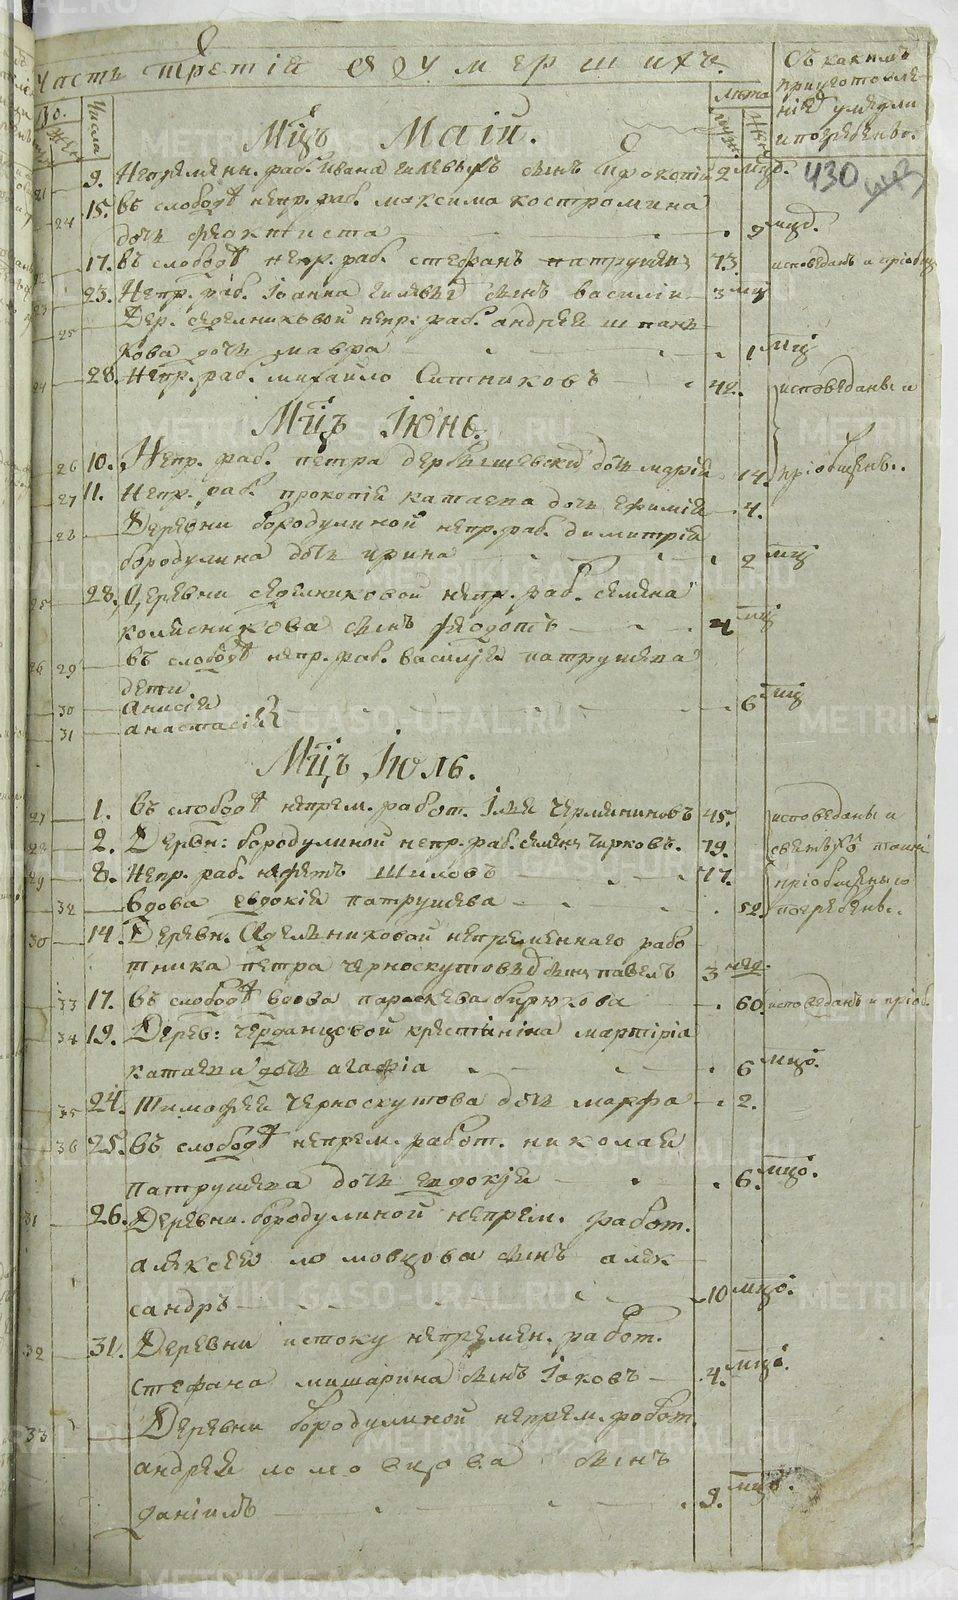 часть третія о умершихъ.
Съ какимъ
приуготовле-
ніе умерли
и погребены.
№.
Числа
Лѣта
муж.
жен.
Мцъ Маій.
430
21 9. Непремѣн. раб. Ивана сынъ Прокопій 2 мцо.
24 15. въ слободѣ непр. раб. максима костромина
дочь феоктиста 9 мцо.
17. въ слободѣ непр. раб. стефанъ патрушевъ 73. исповѣданъ и пріобщ
23 23. Непр. раб. Іоанна сынъ василій 3 мц
25 Дер. седелниковой непр. раб. андрея шпань
кова дочь мавра 1 мц
24 28. Непр. раб. михайло Ситниковъ 42. исповѣданы и
Мцъ Іюнь.
26 10. Непр. раб. петра дербышевскаго дочь марія 14. пріобщены.
27 11. Непр. раб. прокопія катаева дочь Ефимія 4.
28 Деревни бородулиной непр. раб. димитрія
бородулина дочь ирина 2 мц
25 28. Деревни седелниковой непр. раб. семена
колясникова сынъ федотъ 4 мц
26 29 въ слободѣ непр. раб. василія патрушева
дети
30 Анисія 6 мц
31 анастасія
Мцъ Іюль.
27 1. въ слободѣ непрем. работ. Ілья Чермяниновъ 45. исповѣданы и
28 2. Деревн: бородулиной непр. раб. семенъ чирковъ. 79. святыхъ таинъ
29 8. Непр. раб. Шиловъ 77. пріобщены и
32 вдова евдокія патрушева 52. погребены.
30 14. Деревн. Седельниковой непременнаго рабо
тника петра черноскутова сынъ павелъ 3 нед.
33 17. въ слободѣ вдова параскева бирюкова 60. исповѣдана и пріоб.
34 19. Дерев: черданцовой крестіянина мартіріа
катаева дочь агафіа 6 мцо.
35 24. Тимофея Черноскутова дочь марфа 2.
36 25. въ слободѣ непрем. работ. николая
патрушева дочь евдокія 6. мцо.
31 26. Деревни бородулиной непрем. работ.
алексея ломовцова сынъ алек
сандръ 10 мцо.
32 31. Деревни истоку непремен. работ.
стефана мишарина сынъ Іаковъ 4. мцо.
33 Деревни бородулиной непрем. работ
андрея ломовцова сынъ
даніилъ 9. мцо.
METRIKI.GASO-URAL.RU